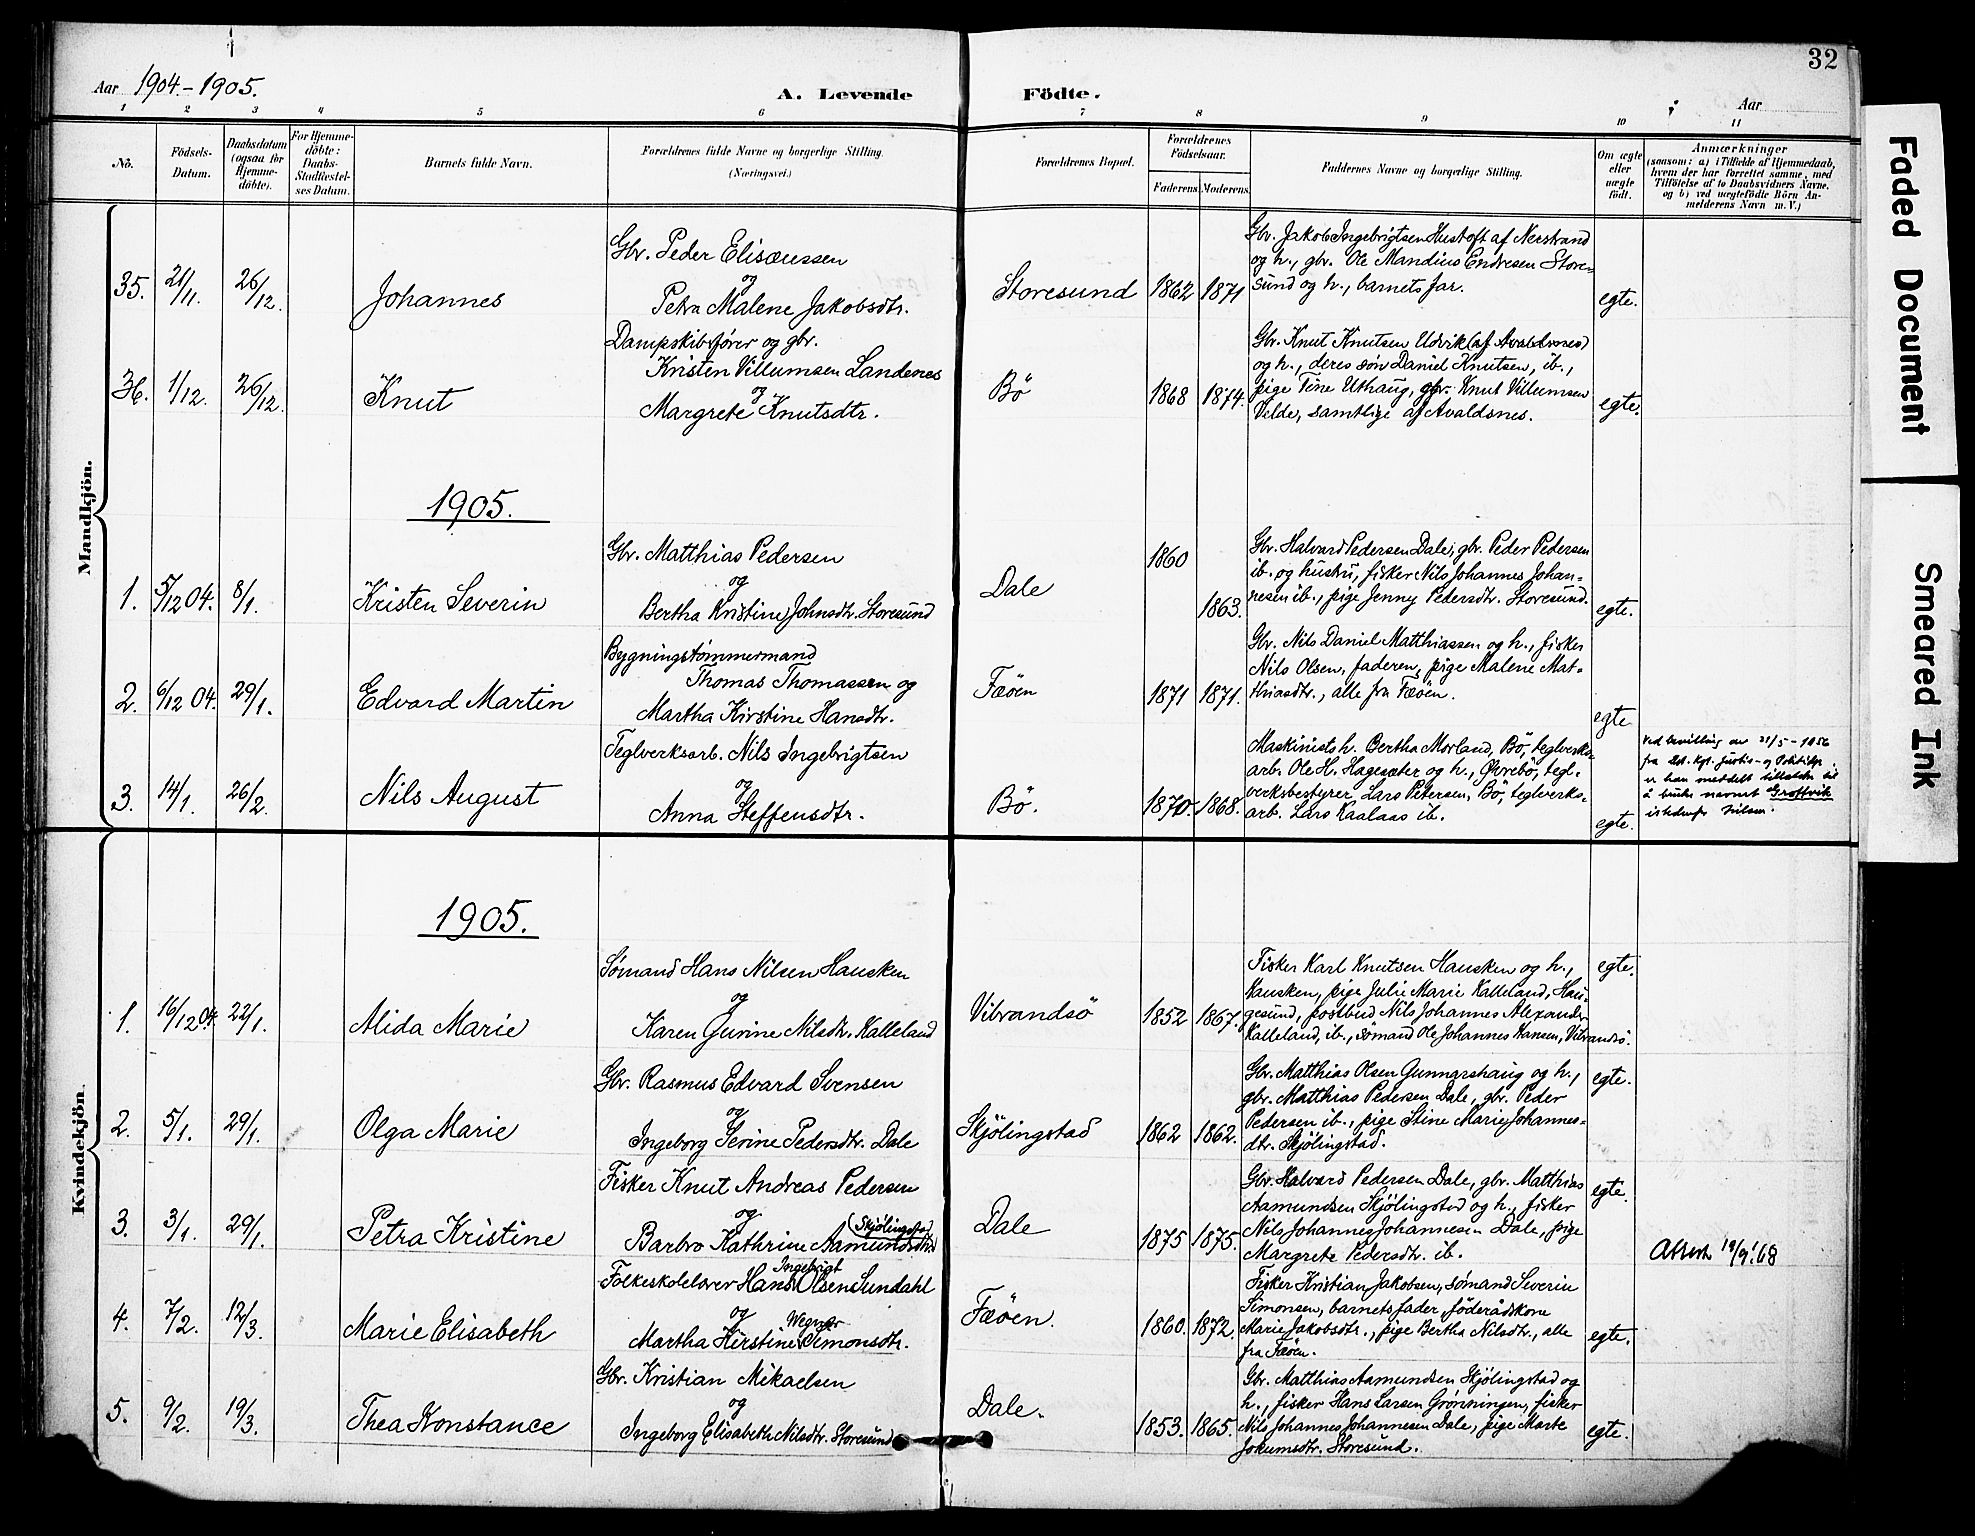 32
Aar 1904.-1905.
A. Levende Födte.
Aar
1 2 3 4 5 6 7 8 9 10 11
No.
Födsels-
Datum.
Daabsdatum
(ogsaa for
Hjemme-
döbte).
For Hjemme-
döbte:
Daabs-
Stadfæstel-
ses Datum.
Barnets fulde Navn.
Forældrenes fulde Navne og borgerlige Stilling.
(Næringsvei.)
Forældrenes Bopæl.
Forældrenes
Födselsaar.
Faderens. Moderens.
Faddernes Navne og borgerlige Stilling.
Om ægte
eller
uægte
födt.
Anmærkninger
(saasom: a) i Tilfælde af Hjemmedaab,
hvem der har forrettet samme, med
Tilföielse af to Daabsvidners Navne,
og b) ved uægtefödte Börn An-
melderens Navn m. V.)
Mandkjön.
35. 21/11. 26/12. Johannes
Gbr. Peder Elisæussen
og
Petra Malene Jakobsdtr.
Storesund 1862 1871
Gbr. Jakob Ingebrigtsen Hustoft af Nerstrand
og h., gbr. Ole Mandius Endresen Store-
sund og h., barnets far.
egte.
36. 1/12. 26/12. Knut
Dampskibsfører og gbr.
Kristen Villumsen Landenes
og
Margrete Knutsdtr.
Bö 1868 1874.
Gbr. Knut Knutsen Udvik (af Avaldsnes)
og h., deres søn Daniel Knutsen, ib.,
pige Tine Uthaug, gbr. Knut Villumsen
Velde, samtlige af Avaldsnes.
egte.
1905.
1. 5/12 04. 8/1. Kristen Severin
Gbr. Matthias Pedersen
og
Bertha Kristine Johnsdtr. Storesund
Dale 1860 1863.
Gbr. Halvard Pedersen Dale, gbr. Peder Pedersen
ib. og hustru, fisker Nils Johannes Johan-
nesen ib., pige Jenny Pedersdtr. Storesund.
egte.
2. 6/12 04. 29/1. Edvard Martin
Bygningstømmermand
Thomas Thomassen og
Martha Kirstine Hansdtr.
Fæöen 1871 1871.
Gbr. Nils Daniel Matthiassen og h., fisker
Nils Olsen, faderen, pige Malene Mat-
thiasdtr., alle fra Fæöen.
egte
3. 14/1. 26/2. Nils August
Teglverksarb. Nils Ingebrigtsen
og
Anna Steffensdtr.
Bö. 1870. 1868.
Maskinists h. Bertha Morland, Bö, teglverks-
arb. Ole H. Hagesæter og h., Øvrebö, tegl-
verksbestyrer Lars Petersen, Bö, teglverks-
arb. Lars Kaalaas ib.
egte.
Ved bevilling av 21/5-1956
fra Det. kgl. Justis- og Politidep.
er han meddelt tillatelse til
å bruke navnet Grottvik
istedenfor Nilsen.
Kvindekjön.
1905.
1. 16/12 04. 22/1. Alida Marie
Sømand Hans Nilsen Hausken
og
Karen Gurine Nilsdtr. Kalleland
Vibrandsö 1852 1867.
Fisker Karl Knutsen Hausken og h.,
Hausken, pige Julie Marie Kalleland, Hau-
gesund, postbud Nils Johannes Alexander
Kalleland, ib., sømand Ole Johannes Hansen, Vibrandsö.
egte.
2. 5/1. 29/1. Olga Marie
Gbr. Rasmus Edvard Svensen
og
Ingeborg Serine Pedersdtr. Dale
Skjölingstad 1862 1862.
Gbr. Matthias Olsen Gunnarshaug og h.,
gbr. Matthias Pedersen Dale, gbr. Peder
Pedersen ib., pige Stine Marie Johannes-
dtr. Skjölingstad.
egte.
3. 3/1. 29/1. Petra Kristine
Fisker Knut Andreas Pedersen
og
(Skjölingstad
Barbro Kathrine Aamundsdtr.
Dale 1875 1875.
Gbr. Halvard Pedersen Dale, gbr. Matthias
Aamundsen Skjölingstad og h., fisker
Nils Johannes Johannesen Dale, pige
Margrete Pedersdtr. ib.
egte.
Attest 19/9.'68
4. 7/2. 12/3. Marie Elisabeth
Ingebrigt
Folkeskolelærer Hans Olsen Sundahl
og
Wegner
Martha Kirstine Simonsdtr.
Fæöen. 1860. 1872.
Fisker Kristian Jakobsen, sømand Severin
Simonsen, barnets fader, föderådskone
Marie Jakobsdtr., pige Bertha Nilsdtr., alle
fra Fæöen.
egte.
5. 9/2. 19/3. Thea Konstance
Gbr. Kristian Mikaelsen
og
Ingeborg Elisabeth Nilsdtr. Storesund
Dale. 1853. 1865.
Gbr. Matthias Aamundsen Skjölingstad og
h., fisker Hans Larsen Grønningen, fisker
Nils Johannes Johannesen Dale, pige Marte
Jokumsdtr. Storesund.
egte.
Faded Document
Smeared Ink